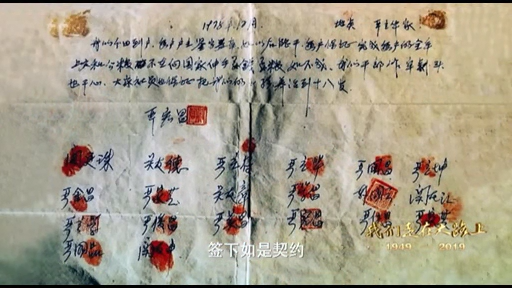 1978.12月 地点 严立华家
我们分田到户,每户户主签字盖章,如以后能干,每户保证完成每户的全年
上交和公粮,不在向国家伸手要钱要粮,如不成,我们干部作牢杀头
也干心,大家社员也保证把我们的小孩养活到十八岁
严宏昌
关廷珠 关友德 严立符 严立华 严国昌 严立坤
严金昌 严家芝 关友章 严学昌 韩国云 关友江
严立学 严俊昌
严国品
我们走在大路上
1949 2019
签下如是契约